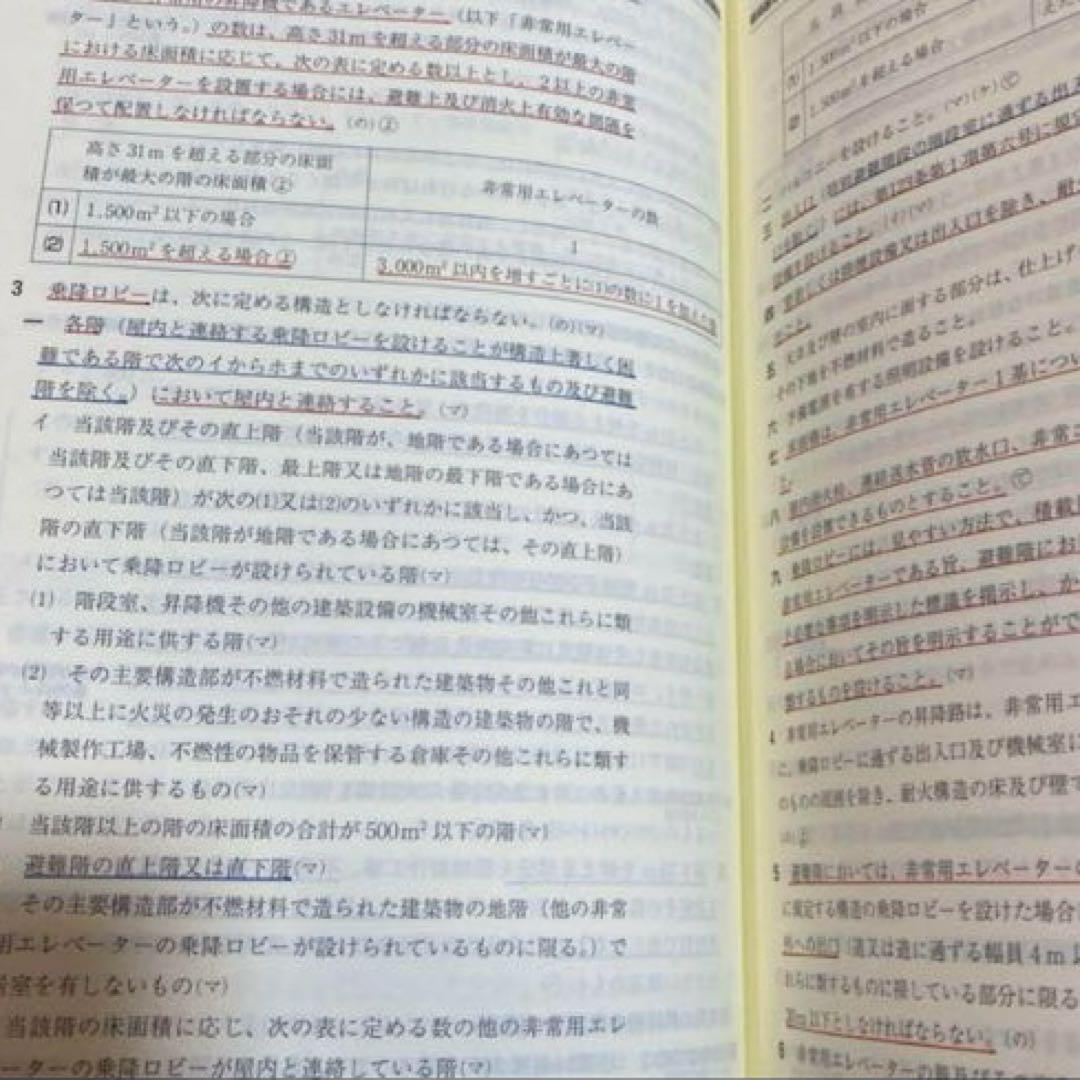 常用の昇降機であるエレベーター（以下「非常用エレベー
ター」という。）の数は、高さ31mを超える部分の床面積が最大の階
における床面積に応じて、次の表に定める数以上とし、2以上の非常
用エレベーターを設置する場合には、避難上及び消火上有効な間隔を
保つて配置しなければならない。(の)②
高さ31mを超える部分の床面
積が最大の階の床面積②
非常用エレベーターの数
(1) 1,500m²以下の場合
1
(2) 1,500m²を超える場合②
3,000m²以内を増すごとに(1)の数に1を加えた数
3 乗降ロビーは、次に定める構造としなければならない。(の)(マ)
一 各階（屋内と連絡する乗降ロビーを設けることが構造上著しく困
難である階で次のイからホまでのいずれかに該当するもの及び避難
階を除く。）において屋内と連絡すること。(マ)
イ 当該階及びその直上階（当該階が、地階である場合にあつては
当該階及びその直下階、最上階又は地階の最下階である場合にあ
つては当該階）が次の(1)又は(2)のいずれかに該当し、かつ、当該
階の直下階（当該階が地階である場合にあつては、その直上階）
において乗降ロビーが設けられている階(マ)
(1) 階段室、昇降機その他の建築設備の機械室その他これらに類
する用途に供する階(マ)
(2) その主要構造部が不燃材料で造られた建築物その他これと同
等以上に火災の発生のおそれの少ない構造の建築物の階で、機
械製作工場、不燃性の物品を保管する倉庫その他これらに類す
る用途に供するもの(マ)
当該階以上の階の床面積の合計が500m²以下の階(マ)
避難階の直上階又は直下階(マ)
その主要構造部が不燃材料で造られた建築物の地階（他の非常
用エレベーターの乗降ロビーが設けられているものに限る。）で
居室を有しないもの(マ)
当該階の床面積に応じ、次の表に定める数の他の非常用エレ
ーターの乗降ロビーが屋内と連絡している階(マ)
(1) 1,500m²以下の場合
(2) 1,500m²を超える場合
二 バルコニーを設けること。(マ)(ケ)
三 出入口（特別避難階段の階段室に通ずる出
には、第123条第1項第六号に規定
設備を設けること。(イ)(マ)
四 窓若しくは排煙設備又は出入口を除き、耐
こと。
五 天井及び壁の室内に面する部分は、仕上げ
その下地を不燃材料で造ること。
六 予備電源を有する照明設備を設けること。
七 床面積は、非常用エレベーター1基につい
八 屋内消火栓、連結送水管の放水口、非常コ
設備を設置できるものとすること。
九 乗降ロビーには、見やすい方法で、積載
非常用エレベーターである旨、避難階にお
な事項を明示した標識を掲示し、か
る場合においてその旨を明示することがで
類するものを設けること。(マ)
4 非常用エレベーターの昇降路は、非常用エ
に、乗降ロビーに通ずる出入口及び機械室に
のものの周囲を除き、耐火構造の床及び壁で
5 避難階においては、非常用エレベーターの
に規定する構造の乗降ロビーを設けた場合
外への出口（道又は道に通ずる幅員4m以
れらに類するものに接している部分に限る
30m以下としなければならない。(の)
6 非常用エレベーターの